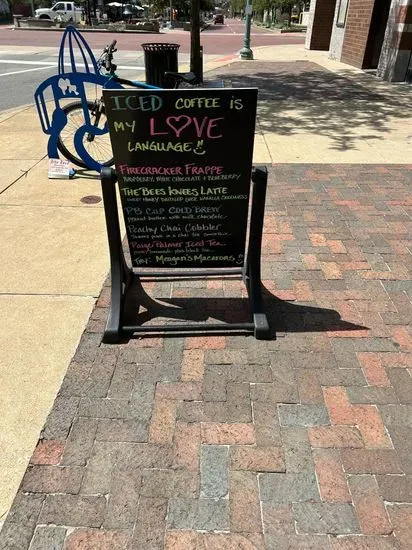 ICED COFFEE is
MY LOVE
LANGUAGE!
FIRECRACKER FRAPPE
RASPBERRY, WHITE CHOCOLATE & BLUEBERRY
THE BEES KNEES LATTE
SWEET HONEY DRIZZLED OVER VANILLA GOODNESS
PB CUP COLD BREW
peanut butter with milk chocolate
Peachy Chai Cobbler
Paige Palmer Iced Tea
TRY: Meagan's MACARONS